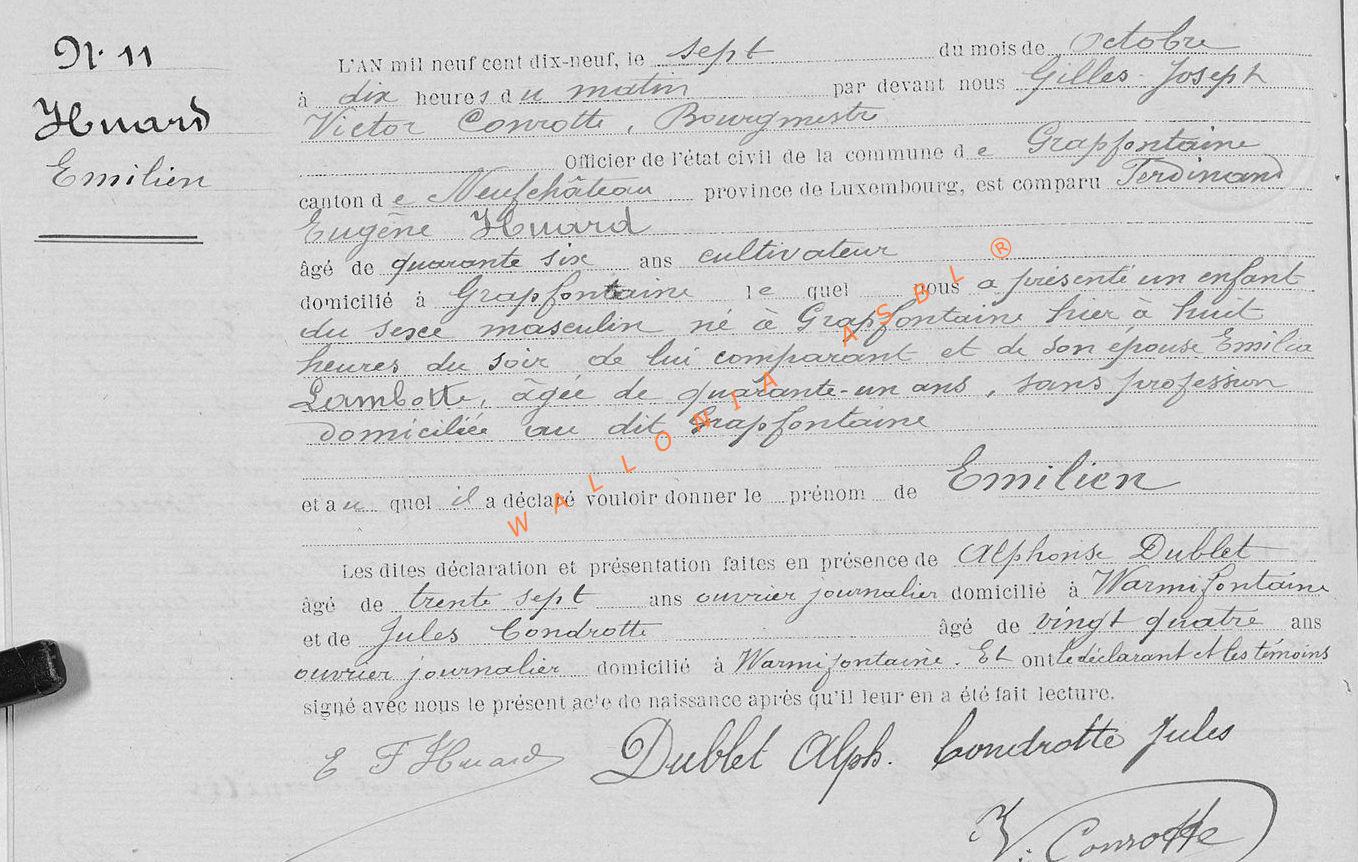 N° 11
Huard
Emilien
L'AN mil neuf cent dix-neuf, le sept du mois de Octobre
à dix heures du matin par devant nous Gilles Joseph
Victor Conrotte, Bourgmestre
Officier de l'état civil de la commune de Grapfontaine
canton de Neufchâteau province de Luxembourg, est comparu Ferdinand
Eugène Huard
âgé de quarante six ans cultivateur
domicilié à Grapfontaine lequel nous a présenté un enfant
du sexe masculin né à Grapfontaine hier à huit
heures du soir de lui comparant et de son épouse Emilia
Lambotte, âgée de quarante-un ans, sans profession
domiciliée au dit Grapfontaine
et au quel il a déclaré vouloir donner le prénom de Emilien
Les dites déclaration et présentation faites en présence de Alphonse Dublet
âgé de trente sept ans ouvrier journalier domicilié à Warmifontaine
et de Jules Condrotte âgé de vingt quatre ans
ouvrier journalier domicilié à Warmifontaine. Et ont le déclarant et les témoins
signé avec nous le présent acte de naissance après qu'il leur en a été fait lecture.
E F Huard Dublet Alph. Condrotte Jules
V. Conrotte
WALLONIA ASBL ®